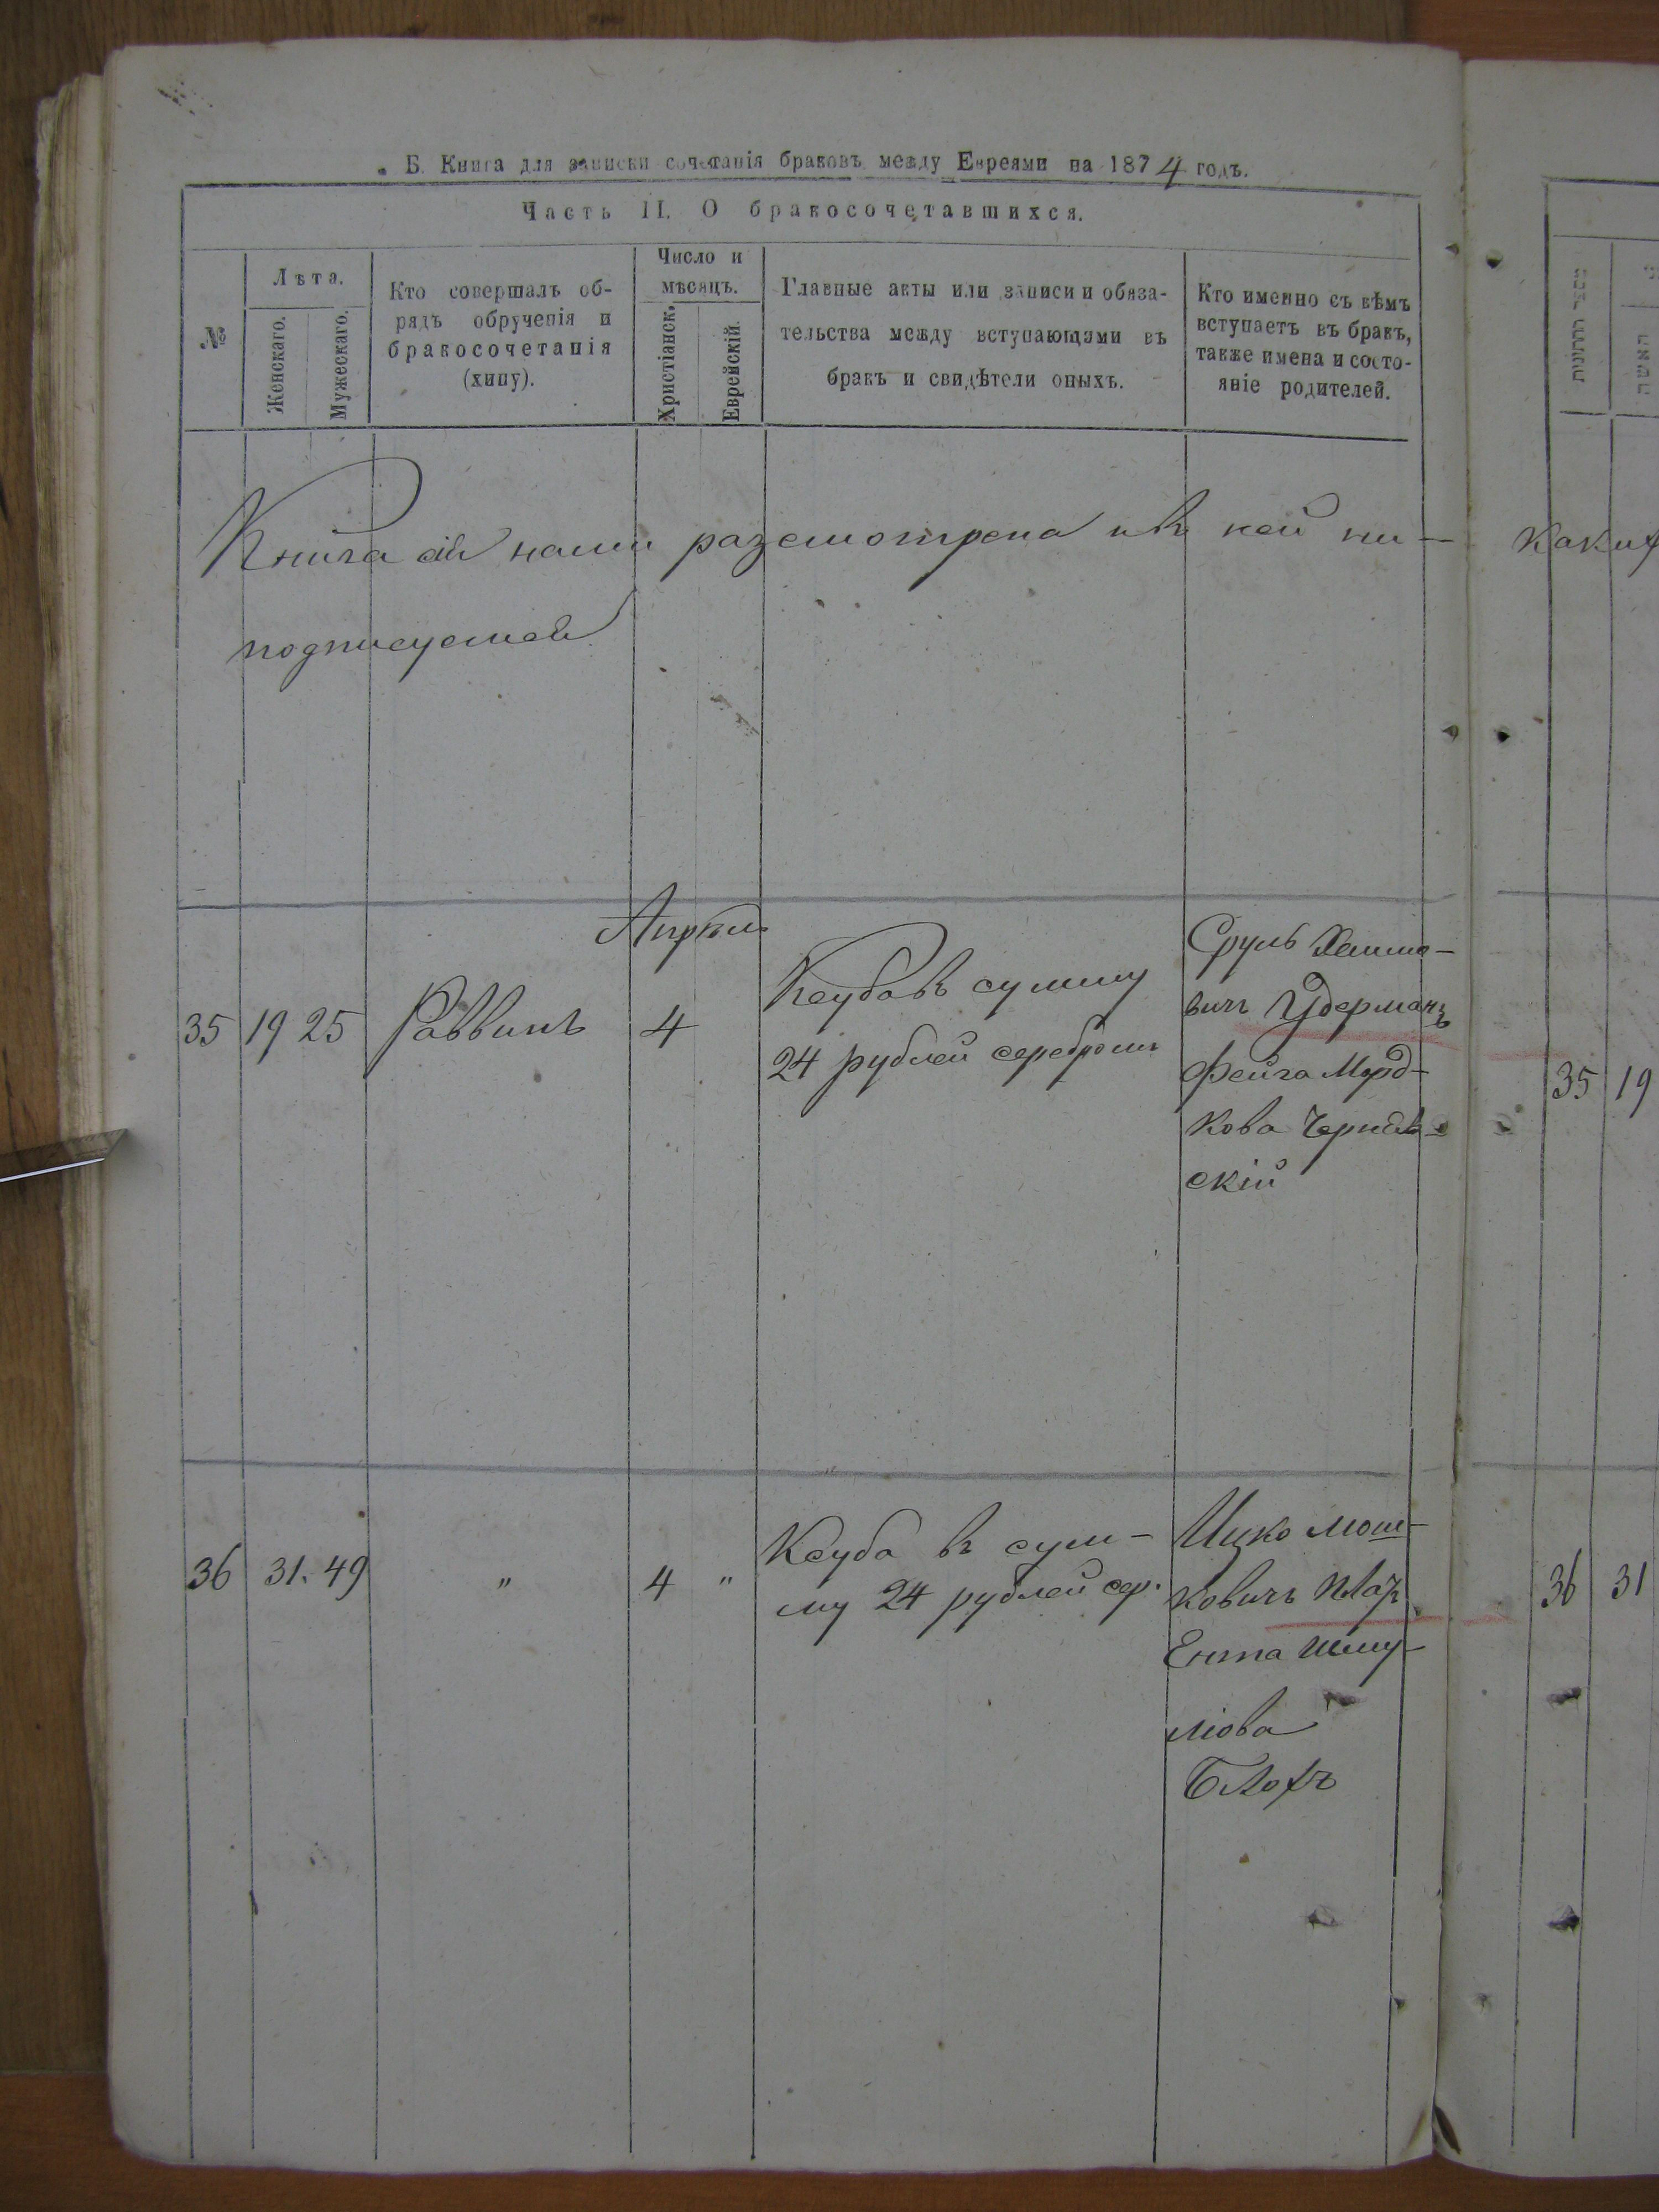 Б. Книга для записки сочетанія браковъ между Евреями на 1874 годъ.
Часть II. О бракосочетавшихся.
№
Лѣта.
Женскаго.
Мужескаго.
Кто совершалъ об-
рядъ обрученія и
бракосочетанія
(хипу).
Число и
мѣсяцъ.
Христіанск.
Еврейскій.
Главные акты или записи и обяза-
тельства между вступающими въ
бракъ и свидѣтели оныхъ.
Кто именно съ кѣмъ
вступаетъ въ бракъ,
также имена и состо-
яніе родителей.
Книга сія нами разсмотрена и въ ней ни-
подписуемся
Апрѣль
35 19 25 Раввинъ 4
Ксуба въ сумму
24 рублей серебромъ
Сруль
вичъ Удерманъ
Фейга Морд-
кова
скій
36 31. 49 " 4 "
Ксуба въ сум-
му 24 рублей сер.
Ицко Мош-
ковичъ
Ента Шму-
лiова
Блохъ
каких
האשה
35 19
36 31